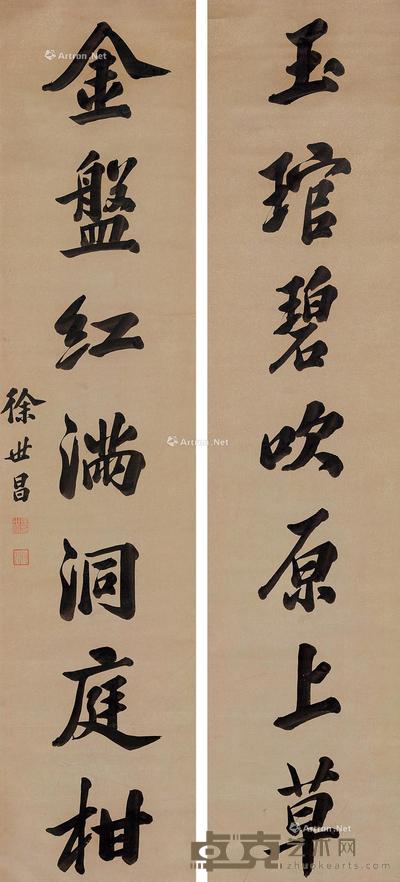 玉琯碧吹原上草
金盤紅滿洞庭柑
徐世昌
Artron.Net
Artron.Net
Artron.Net
卓克艺术网
zhuokearts.com